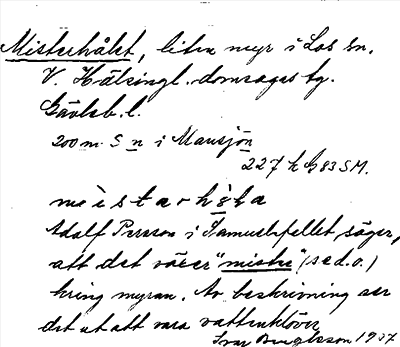 Misterhålet, liten myr i Los sn,
V. Hälsingl. domsagas tg.
Gävleb. l.
200 m S n i Mansjön
227 h G 83 SM.
mèistarhòla
Adolf Persson i Tamushpellet, säger,
att det växer "mister" (se d. o.)
kring myran. Av beskrivning ser
det ut att vara vattenklöver
Ivar Bengtsson 1937